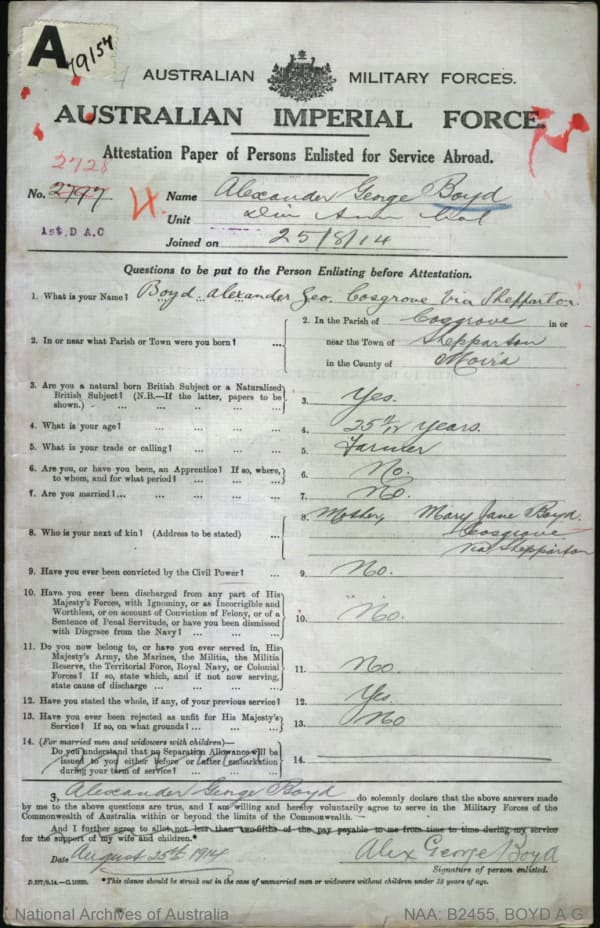 A
19154
AUSTRALIAN MILITARY FORCES.
AUSTRALIAN IMPERIAL FORCE.
Attestation Paper of Persons Enlisted for Service Abroad.
2728
No. 2797
Name Alexander George Boyd
Unit Div Amm Col
1st. D A.C
Joined on 25/8/14
Questions to be put to the Person Enlisting before Attestation.
1. What is your Name? Boyd Alexander Geo. Cosgrove Via Shepparton
2. In or near what Parish or Town were you born? ...
2. In the Parish of Cosgrove in or
near the Town of Shepparton
in the County of Moira
3. Are you a natural born British Subject or a Naturalized
British Subject? (N.B.—If the latter, papers to be
shown.) ... ... ... ... ...
3. Yes.
4. What is your age? ... ... ... ... ...
4. 25 years.
5. What is your trade or calling? ... ... ... ...
5. Farmer
6. Are you, or have you been, an Apprentice? If so, where,
to whom, and for what period? ... ... ... ...
6. No.
7. Are you married?... ... ... ... ...
7. No.
8. Who is your next of kin? (Address to be stated) ...
8. Mother, Mary Jane Boyd.
Cosgrove
via Shepparton
9. Have you ever been convicted by the Civil Power? ...
9. No.
10. Have you ever been discharged from any part of His
Majesty's Forces, with Ignominy, or as Incorrigible and
Worthless, or on account of Conviction of Felony, or of a
Sentence of Penal Servitude, or have you been dismissed
with Disgrace from the Navy? ... ... ...
10. No.
11. Do you now belong to, or have you ever served in, His
Majesty's Army, the Marines, the Militia, the Militia
Reserve, the Territorial Force, Royal Navy, or Colonial
Forces? If so, state which, and if not now serving,
state cause of discharge ... ... ... ...
11. No.
12. Have you stated the whole, if any, of your previous service?
12. Yes
13. Have you ever been rejected as unfit for His Majesty's
Service? If so, on what grounds? ... ... ...
13. No
14. (For married men and widowers with children)—
Do you understand that no Separation Allowance will be
issued to you either before or after embarkation
during your term of service? ... ... ...
14.
I, Alexander George Boyd do solemnly declare that the above answers made
by me to the above questions are true, and I am willing and hereby voluntarily agree to serve in the Military Forces of the
Commonwealth of Australia within or beyond the limits of the Commonwealth.
And I further agree to allot not less than two-fifths of the pay payable to me from time to time during my service
for the support of my wife and children.*
Date August 25th 1914
Alex George Boyd
Signature of person enlisted.
*This clause should be struck out in the case of unmarried men or widowers without children under 18 years of age.
National Archives of Australia
NAA: B2455, BOYD A G